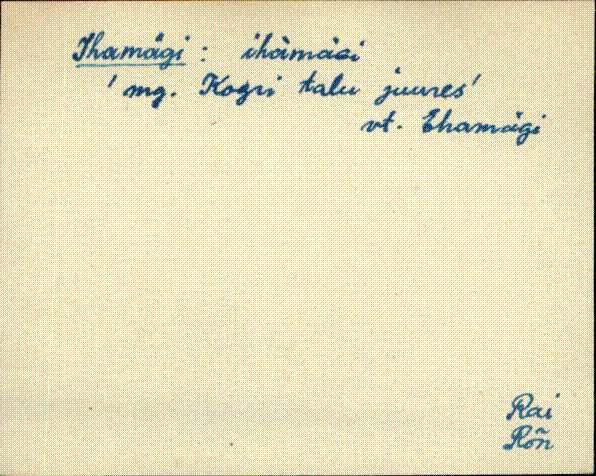 Ihamägi : ihàmäɢi
' mg. Kogri talu juures'
vt. Ehamägi
Rai
Rõn